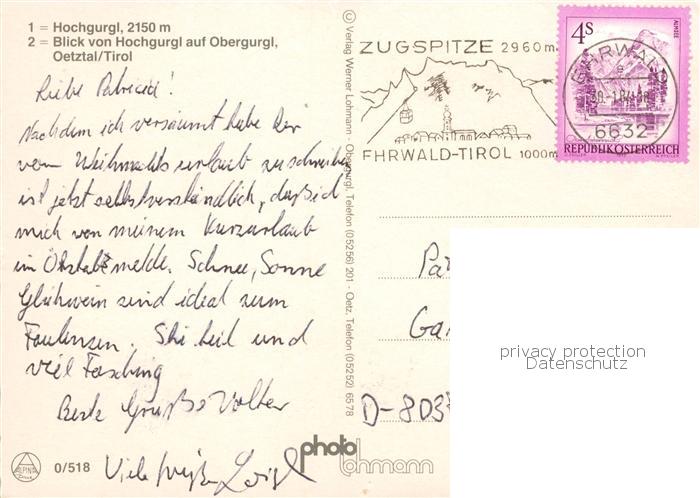 1 = Hochgurgl, 2150 m
2 = Blick von Hochgurgl auf Obergurgl,
Oetztal/Tirol
Liebe Patricia!
Nachdem ich versäumt habe Dir
vom Weihnachtsurlaub zu schreiben
ist jetzt selbstverständlich, daß ich
mich von meinem Kurzurlaub
im Ötztal melde. Schnee, Sonne
Glühwein sind ideal zum
Faulenzen. Ski heil und
viel Fasching
Beste Grüße Volker
Viele Grüße
ALPINA
DRUCK
0/518
© Verlag Werner Lohmann - Obergurgl, Telefon (05256) 201 - Oetz, Telefon (05252) 6578
photo
lohmann
ZUGSPITZE 2960 m
EHRWALD-TIROL 1000 m
4S
ALMSEE
EHRWALD
6632
REPUBLIK ÖSTERREICH
Pat
Gar
D-803
privacy protection
Datenschutz